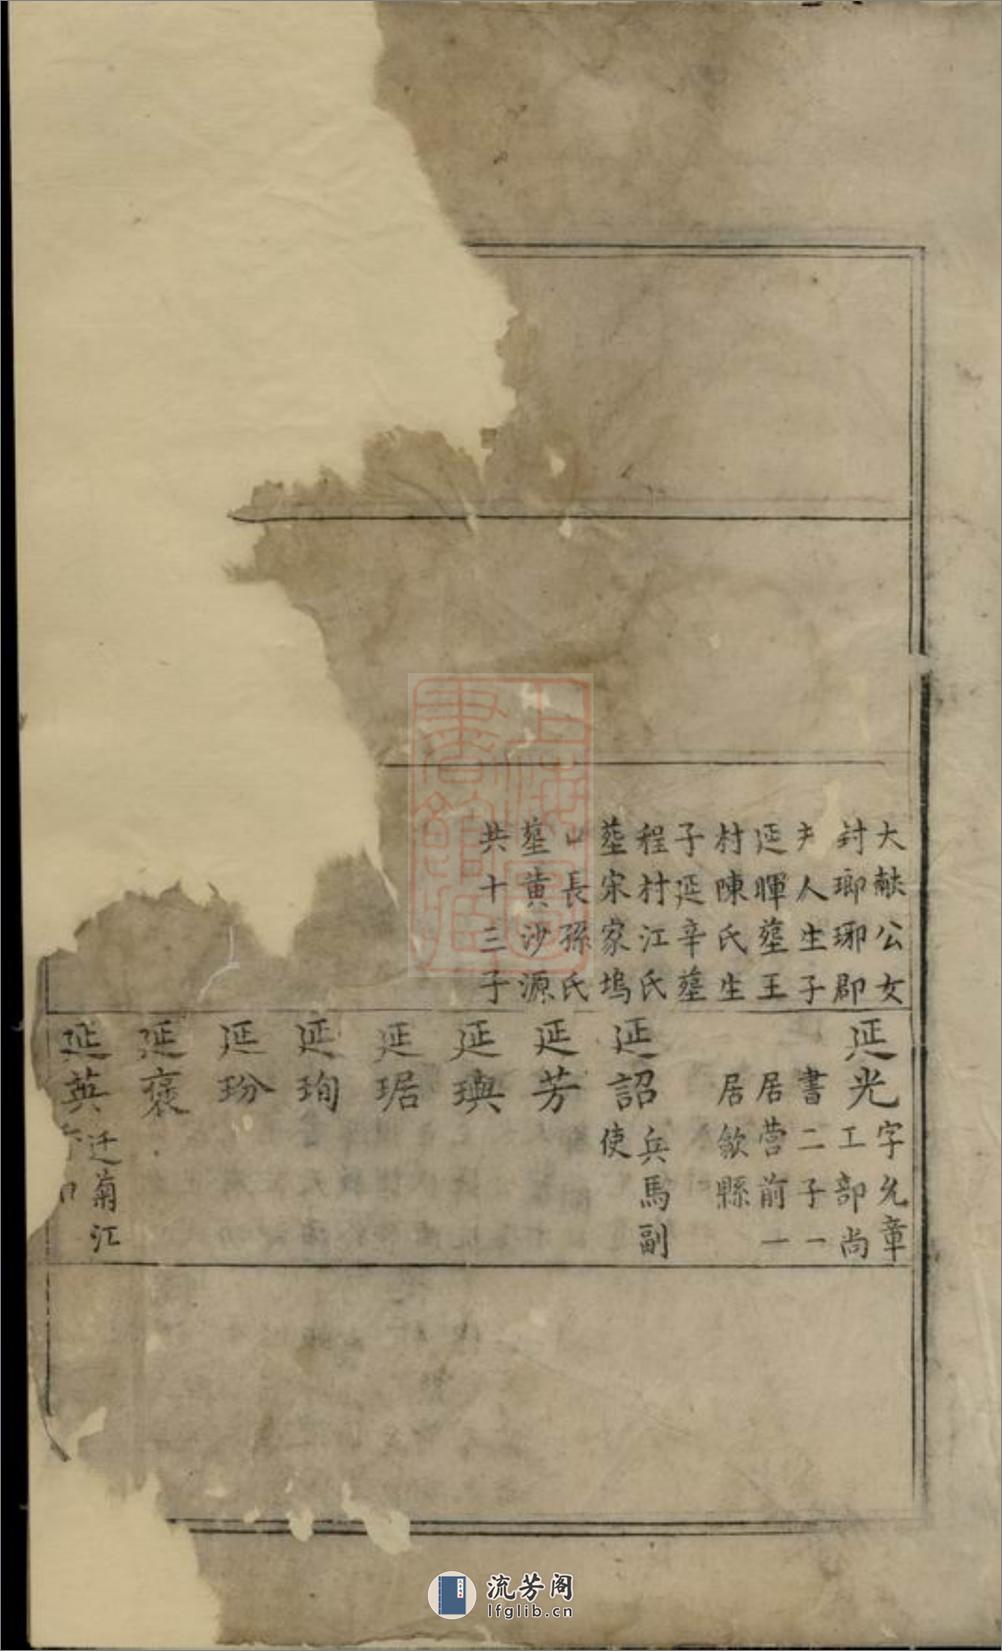 大獻公女
封瑯琊郡
夫人生子
延暉塟王
村陳氏生
子延辛塟
程村江氏
塟宋家塢
長孫氏
塟黃沙源
共十三子
延光
字允章
工部尚
書二子一
居營前一
居歙縣
延詔
兵馬副
使
延芳
延璵
延琚
延珣
延玢
延褒
延英
迁菊江
流芳阁
lfglib.cn